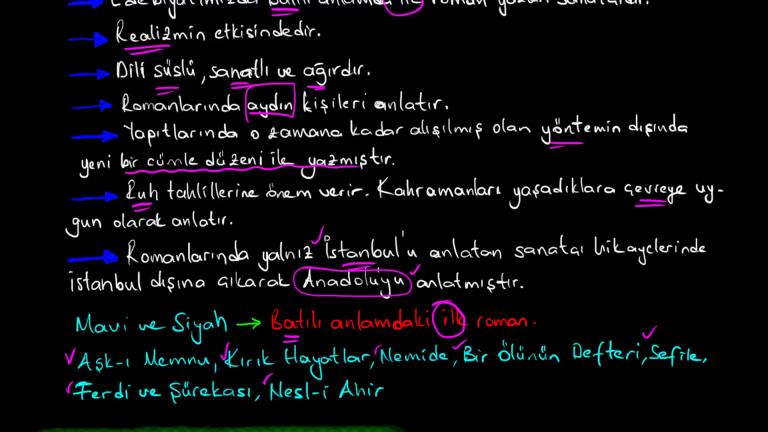 Edebiyatımızda Batılı anlamda ilk roman yazan sanatçıdır.
Realizmin etkisindedir.
Dili süslü, sanatlı ve ağırdır.
Romanlarında aydın kişileri anlatır.
Yapıtlarında o zamana kadar alışılmış olan yöntemin dışında
yeni bir cümle düzeni ile yazmıştır.
Ruh tahlillerine önem verir. Kahramanları yaşadıkları çevreye uy-
gun olarak anlatır.
Romanlarında yalnız İstanbul'u anlatan sanatçı hikayelerinde
istanbul dışına çıkarak Anadoluyu anlatmıştır.
Mavi ve Siyah → Batılı anlamdaki ilk roman.
Aşk-ı Memnu, Kırık Hayatlar, Nemide, Bir Ölünün Defteri, Sefile,
Ferdi ve Şürekası, Nesl-i Ahir